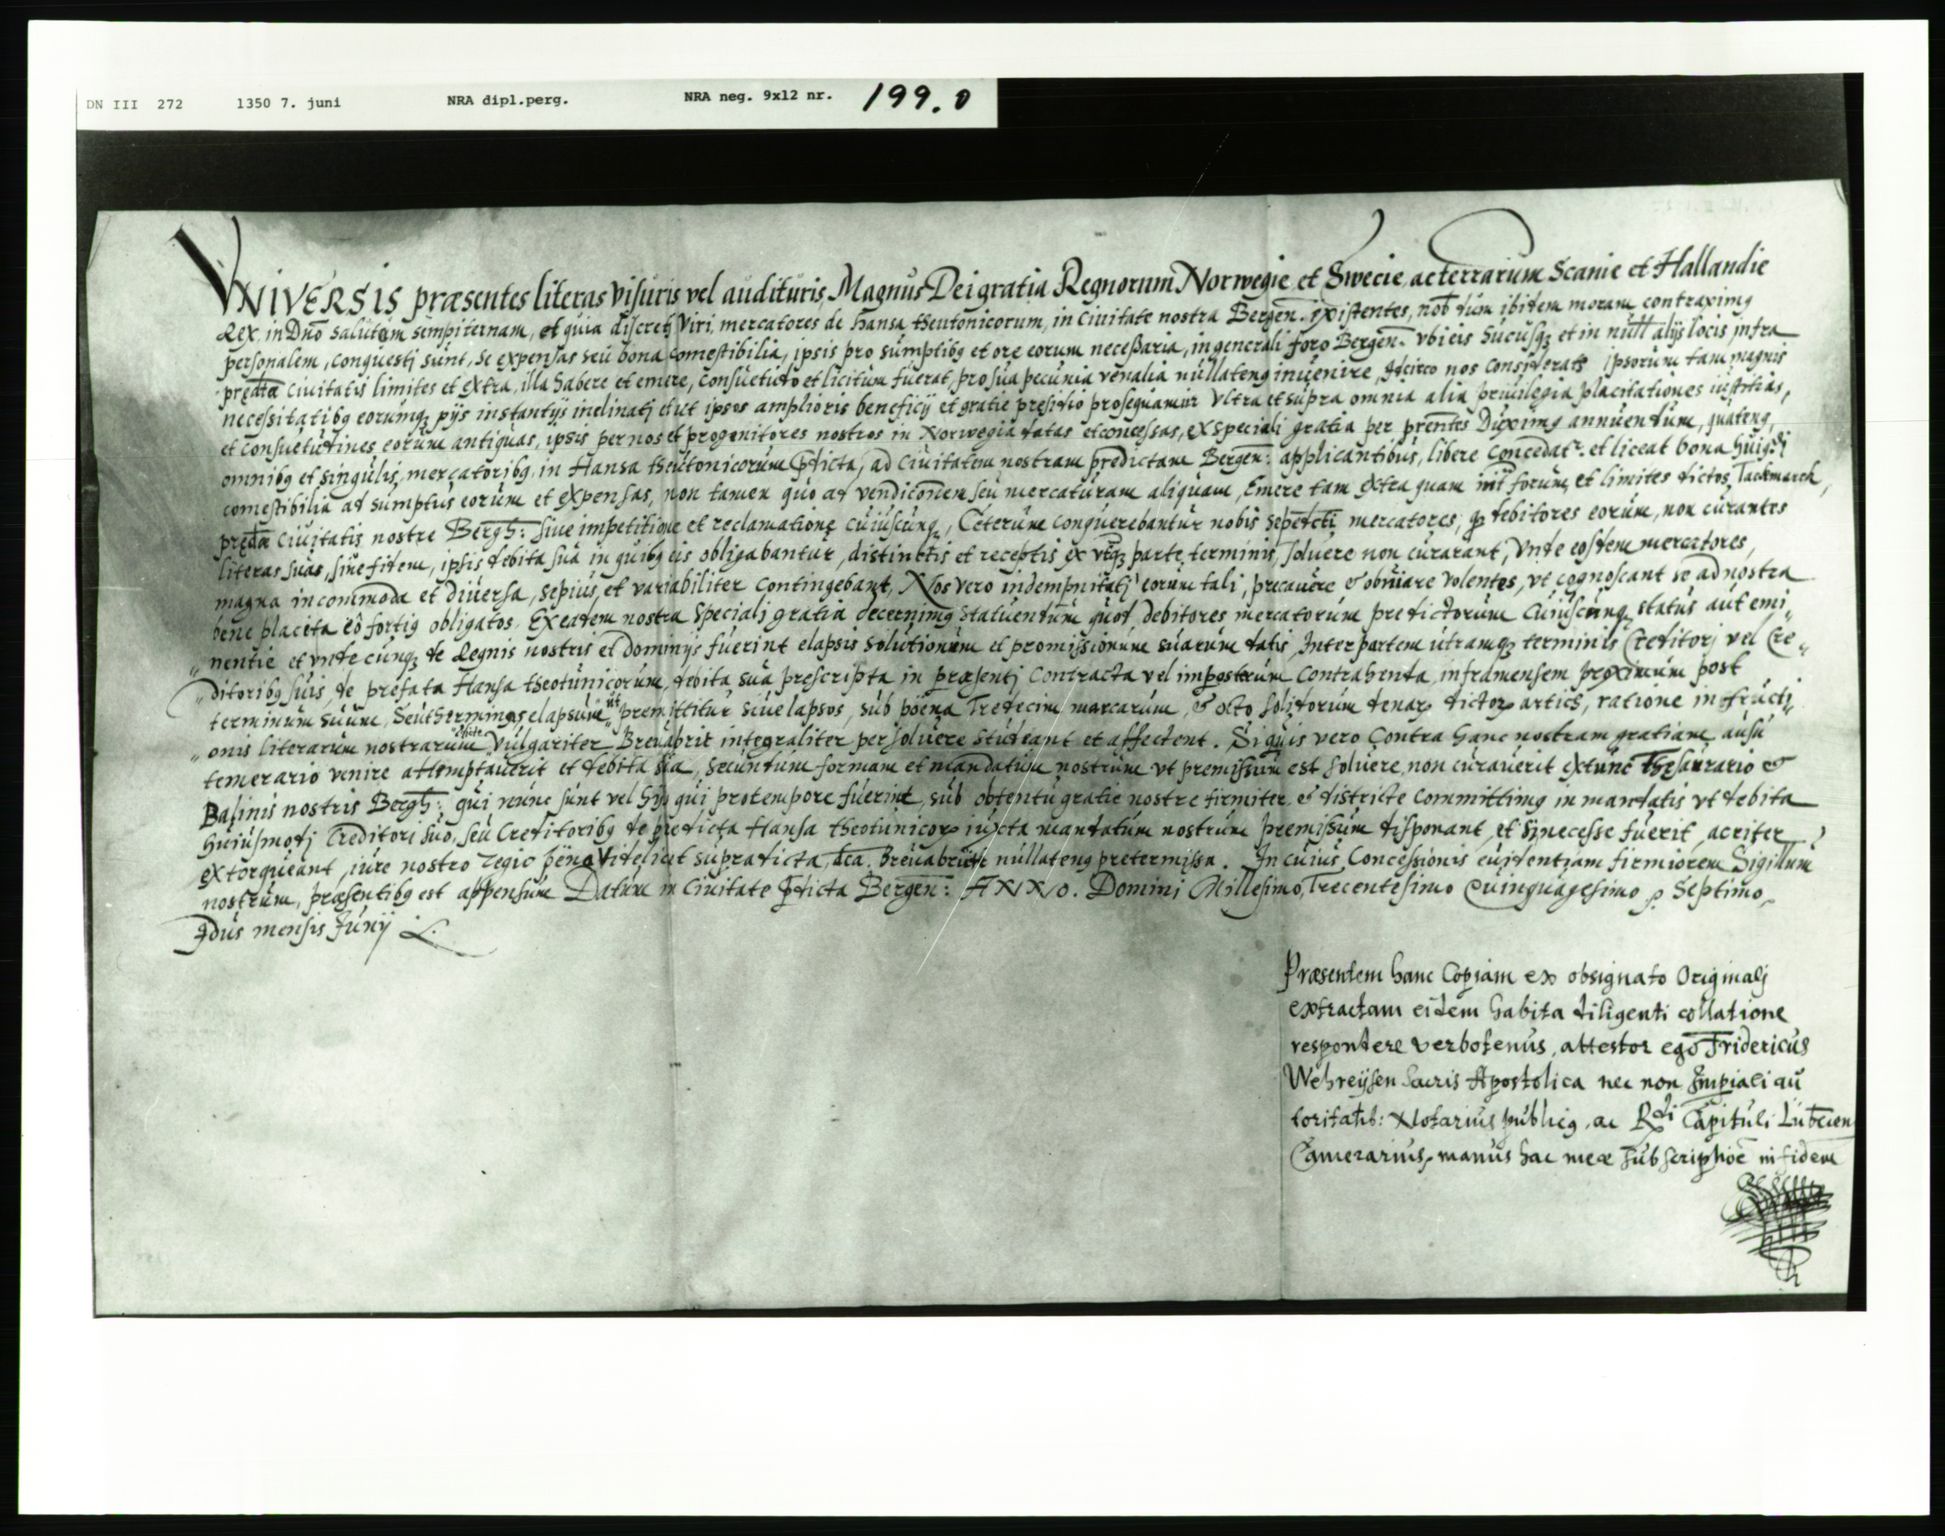 DN III 272 1350 7. juni NRA dipl.perg. NRA neg. 9x12 nr. 199.0
VNIVERSIS præsentes literas visuris vel audituris, Magnus Dei gratia Regnorum Norwegie et Swecie, ac terrarum Scanie et Hallandie
Rex, in Dnō salutem sempiternam, et quia discretj Viri, mercatores de hansa theutonicorum, in Ciuitate nostra Bergen. existentes, nob dum ibidem moram contraximꝯ
personalem, conquestj sunt, se expensas seu bona comestibilia, ipsis pro sumptibꝯ et ore eorum necessaria, in generali foro Bergen: vbi eis hucusqꝫ et in null alijs locis infra
predtæ Ciuitatis limites et extra, illa habere et emere, consuetudo et licitum fuerat, pro sua pecunia venalia nullatenꝯ inuenire, Idcirco nos Consideratis Ipsorum tam magnis
necessitatibꝯ eorumqꝫ pijs instantijs inclinatj et ut ipsos amplioris beneficij et gratie presidio prosequamur Vltra et supra omnia alia priuilegia placitationes iustitias,
et consuetudines eorum antiquas, ipsis per nos et progenitores nostros in Norwegia datas et concessas, ex speciali gratia per prentes Duximꝯ annuendum, quatenꝯ,
omnibꝯ et singulis mercatoribꝯ, in Hansa theutonicorum pdicta, ad Ciuitatem nostram predictam Bergen: applicantibus, libere Concedat.ʳ et liceat bona huiꝯdi
comestibilia ad sumptus eorum et expensas, non tamen quo ad vendiconem seu mercaturam aliquam, Emere tam extra quam int forum et limites dictos, Tackmarck,
predtæ Ciuitatis nostre Bergh: sine impetitione et reclamatione cuiuscunqꝫ, Ceterum conquerebantur nobis sepedcti mercatores, qꝫ debitores eorum, non curantes
literas suas, siue fidem, ipsis debita sua in quibꝯ eis obligabantur, distinctis et receptis ex vtqꝫ parte terminis, soluere non curarant, Vnde eosdem mercatores,
magna incommoda et diuersa, sepius, et variabiliter Contingebant, Nos vero indempnitatj eorum tali, precauere & obuiare volentes, vt cognoscant se ad nostra
bene placita eo fortiꝯ obligatos. Ex eadem nostra specialj gratia decernimꝯ statuendum quod debitores mercatorum predictorum Cuiuscunqꝫ status aut emi„
„nentie et vnde cunqꝫ de Regnis nostris et Dominijs fuerint elapsis solutionum et promissionum suarum datis, Inter partem utramqꝫ terminis Creditorj vel Cre„
„ditoribꝯ suis, de prefata Hansa theotunicorum, debita sua prescripta in præsentj Contracta vel imposterum Contrahenda, infra mensem proximum post
terminum suum, seu terminos elapsum, ut premittitur siue lapsos, sub pöena Tredecim marcarum, & octo solidorum denarꝝ dictorꝝ articl̄s, ratione in fractj„
„onis literarum nostrarum dicte Vulgariter Breuabrut integraliter persoluere studeant et affectent. Si quis vero Contra hanc nostram gratiam ausu
temerario venire attemptauerit et debita sua, secundum formam et mandatum nostrum vt premissum est soluere, non curauerit extunc Thesaurario &
Baliuis nostris Bergh: qui nunc sunt vel hijs qui pro tempore fuerint, sub obtentu gratie nostre firmiter & districte committimꝯ in mandatis vt debita
huiusmodj Creditori suo, seu Creditoribꝯ de predicta Hansa theotunicorꝝ iuxta mandatum nostrum premissum disponant, et si necesse fuerit, acriter
extorqueant, iure nostro regio pëna videlicet supradicta, dca, Breuabrutt nullatenꝯ pretermissa. In cuius Concessionis euidentiam firmiorem Sigillum
nostrum, præsentibꝯ est appensum Datum in Ciuitate pdicta Bergen: ANNO. Domini Millesimo, Trecentesimo Quinquagesimo, Septimo,
Idus mensis Junij
Præsentem hanc Copiam ex obsignato Originalj
extractam eidem habita diligenti collatione
respondere verbotenus, attestor ego Fridericus
Wehreijsen Sacris Apostolica nec non Impiali au
toritatib: Notarius publicꝯ, ac Rdi Capituli Lubecen
Camerarius, manus hac meæ subscriptiöe in fidem